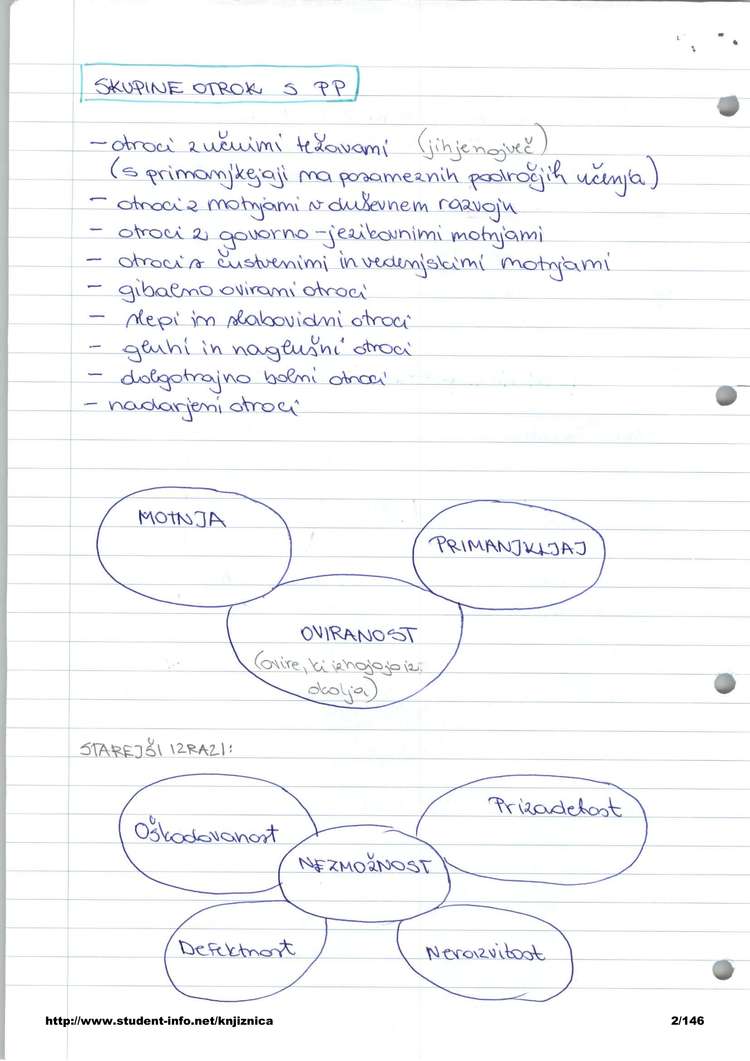 SKUPINE OTROK S PP
- otroci z učnimi težavami (jih je največ)
(s primanjkljaji na posameznih področjih učenja)
- otroci z motnjami v duševnem razvoju
- otroci z govorno-jezikovnimi motnjami
- otroci s čustvenimi in vedenjskimi motnjami
- gibalno ovirani otroci
- slepi in slabovidni otroci
- gluhi in naglušni otroci
- dolgotrajno bolni otroci
- nadarjeni otroci
MOTNJA
PRIMANJKLJAJ
OVIRANOST
(ovire, ki izhajajo iz
okolja)
STAREJŠI IZRAZI:
Oškodovanost
Prizadetost
NEZMOŽNOST
Defektnost
Nerazvitost
http://www.student-info.net/knjiznica
2/146